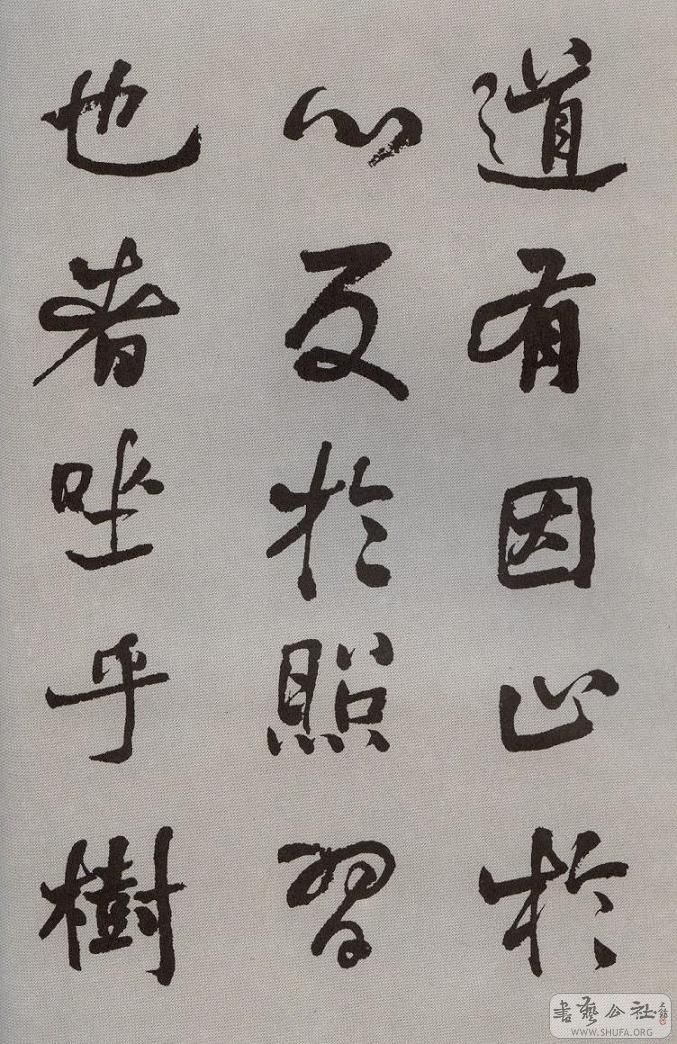 道有因止於
心反於照習
也者坐乎樹
書藝公社
WWW.SHUFA.ORG